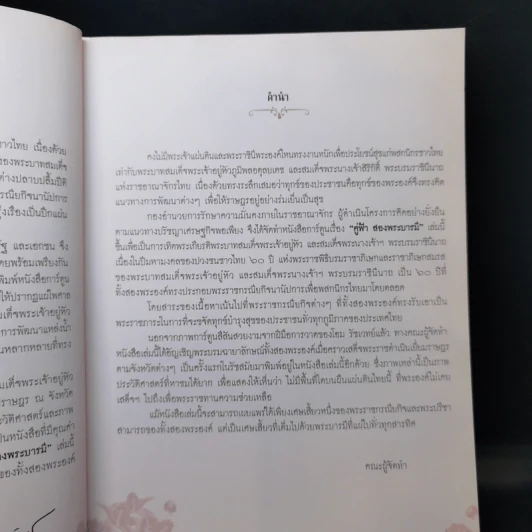 คำนำ
คงไม่มีพระเจ้าแผ่นดินและพระราชินีพระองค์ไหนทรงงานหนักเพื่อประโยชน์สุขแก่พสกนิกรชาวไทย
เท่ากับพระบาทสมเด็จพระเจ้าอยู่หัวภูมิพลอดุลยเดช และสมเด็จพระนางเจ้าสิริกิติ์ พระบรมราชินีนาถ
แห่งราชอาณาจักรไทย เนื่องด้วยทรงระลึกเสมอว่าทุกข์ของประชาชนคือทุกข์ของพระองค์จึงทรงคิด
แนวทางการพัฒนาต่างๆ เพื่อให้ราษฎรอยู่อย่างร่มเย็นเป็นสุข
กองอำนวยการรักษาความมั่นคงภายในราชอาณาจักร ผู้ดำเนินโครงการคิดอย่างยั่งยืน
ตามแนวทางปรัชญาเศรษฐกิจพอเพียง จึงได้จัดทำหนังสือการ์ตูนเรื่อง "คู่ฟ้า สองพระบารมี" เล่มนี้
ขึ้นเพื่อเป็นการเทิดพระเกียรติพระบาทสมเด็จพระเจ้าอยู่หัว และสมเด็จพระนางเจ้าฯ พระบรมราชินีนาถ
เนื่องในปีมหามงคลของปวงชนชาวไทย ๖๐ ปี แห่งพระราชพิธีบรมราชาภิเษกและราชาภิเษกสมรส
ของพระบาทสมเด็จพระเจ้าอยู่หัว และสมเด็จพระนางเจ้าฯ พระบรมราชินีนาถ เป็น ๖๐ ปีที่
ทั้งสองพระองค์ทรงประกอบพระราชกรณียกิจนานัปการเพื่อพสกนิกรไทยมาโดยตลอด
โดยสาระของเนื้อหาเน้นไปที่พระราชกรณียกิจต่างๆ ที่ทั้งสองพระองค์ทรงรับเอาเป็น
พระราชภาระในการที่จะขจัดทุกข์บำรุงสุขของประชาชนทั่วทุกภูมิภาคของประเทศไทย
นอกจากภาพการ์ตูนสีสันสวยงามจากฝีมือการวาดของโอม รัชเวทย์แล้ว ทางคณะผู้จัดทำ
หนังสือเล่มนี้ได้อัญเชิญพระบรมฉายาลักษณ์ทั้งสองพระองค์เมื่อคราวเสด็จพระราชดำเนินเยี่ยมราษฎร
ตามจังหวัดต่างๆ เป็นครั้งแรกในรัชสมัยมาพิมพ์อยู่ในหนังสือเล่มนี้อีกด้วย ซึ่งภาพเหล่านี้เป็นภาพ
ประวัติศาสตร์ที่หาชมได้ยาก เพื่อแสดงให้เห็นว่า ไม่มีพื้นที่ใดบนผืนแผ่นดินไทยนี้ ที่พระองค์ไม่เคย
เสด็จฯ ไปถึงเพื่อพระราชทานความช่วยเหลือ
แม้หนังสือเล่มนี้จะสามารถเผยแพร่ได้เพียงเศษเสี้ยวหนึ่งของพระราชกรณียกิจและพระปรีชา
สามารถของทั้งสองพระองค์ แต่เป็นเศษเสี้ยวที่เต็มไปด้วยพระบารมีที่แผ่ไปทั่วทุกสารทิศ
คณะผู้จัดทำ